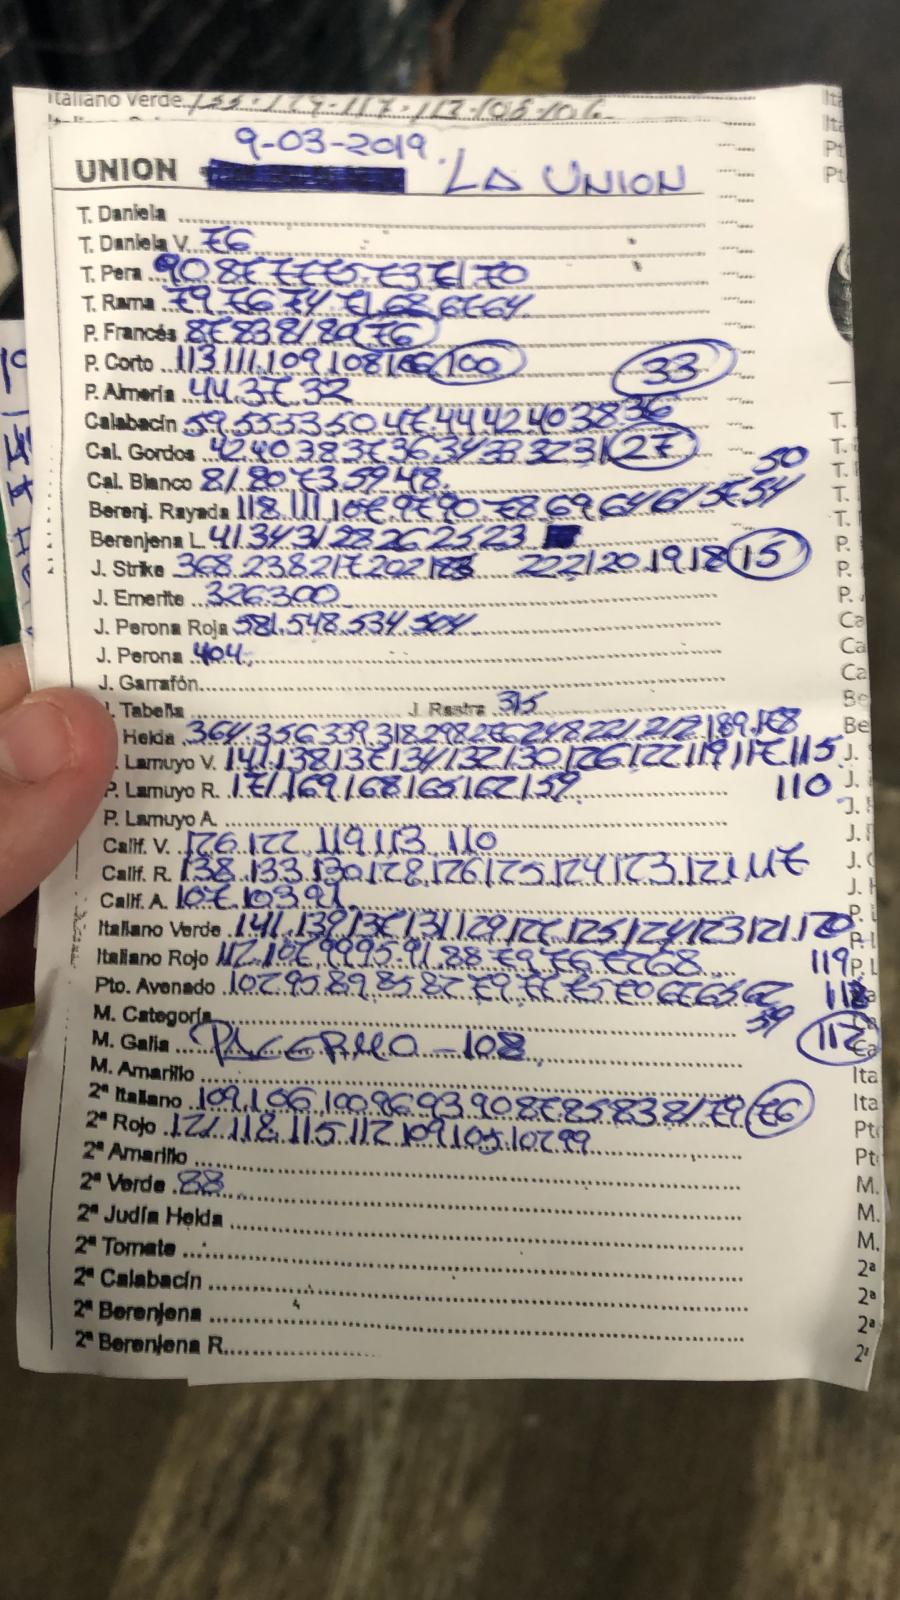 Italiano Verde
9-03-2019.
UNION LA UNION
T. Daniela
T. Daniela V. 76
T. Pera 90 87 77 75 73 71 70
T. Rama 79 76 74 71 68 67 64
P. Francés 87 83 81 80 76
P. Corto 113 111 109 108 106 100 33
P. Almería 44 37 32
Calabacín 59 55 53 50 47 44 42 40 38 36
Cal. Gordos 42 40 38 37 36 34 33 32 31 27
Cal. Blanco 81 80 73 59 48 50
Berenj. Rayada 118 111 107 97 90 78 69 64 61 57 54
Berenjena L. 41 34 31 28 26 25 23
J. Strike 368 238 217 202 222120 19 18 15
J. Emerite 326 300
J. Perona Roja 581 548 534 504
J. Perona 404
J. Garrafón
J. Tabella J. Rastra 315
Helda 364 356 339 318 298 276 248 221 212 189 178
Lamuyo V. 141 138 137 134 132 130 126 122 119 117 115
P. Lamuyo R. 171 169 168 165 162 159 110
P. Lamuyo A.
Calif. V. 126 122 119 113 110
Calif. R. 138 133 130 128 126 125 124 123 121 117
Calif. A. 107 103 91
Italiano Verde 141 139 137 131 129 127 125 124 123 121 120
Italiano Rojo 112 107 99 95 91 88 79 76 72 68 119
Pto. Avenado 102 95 89 85 82 79 77 75 70 67 65 62 118
M. Categoría 59
M. Galia PALERMO - 108 117
M. Amarillo
2ª Italiano 109 106 100 96 93 90 87 85 83 81 79 76
2ª Rojo 121 118 115 112 109 105 102 99
2ª Amarillo
2ª Verde 88
2ª Judía Helda
2ª Tomate
2ª Calabacín
2ª Berenjena
2ª Berenjena R.